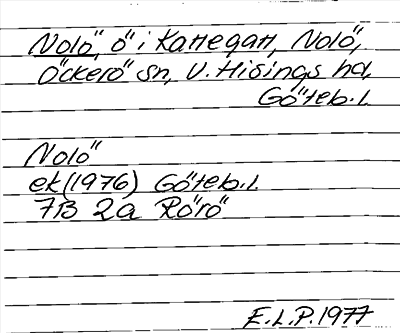 Nolö, ö i Kattegatt, Nolö,
Öckerö sn, V. Hisings hd,
Göteb. l.
Nolö
ek (1976) Göteb. l.
7B 2a Rörö
E.L.P. 1977